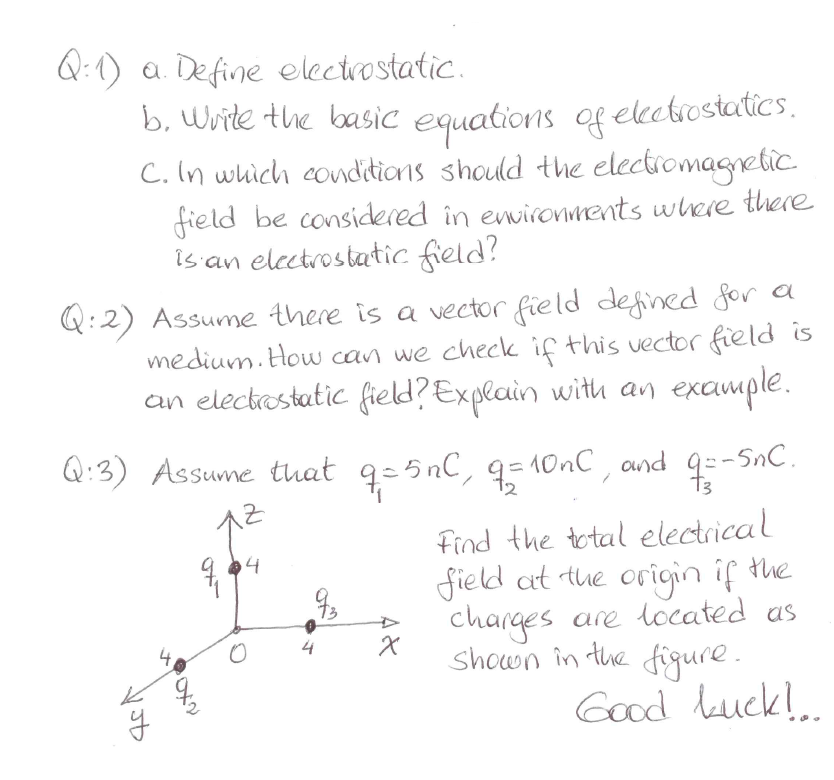 Q:1) a. Define electrostatic.
b. Write the basic equations of electrostatics.
C. In which conditions should the electromagnetic
field be considered in environments where there
is an electrostatic field?
Q:2) Assume there is a vector field defined for a
medium. How can we check if this vector field is
an electrostatic field? Explain with an example.
Q:3) Assume that q₁=5nC, q₂=10nC, and q₃=-5nC.
Find the total electrical
field at the origin if the
charges are located as
shown in the figure.
Good luck!...
z
q₁ 4
q₃
4 O 4 x
q₂
y